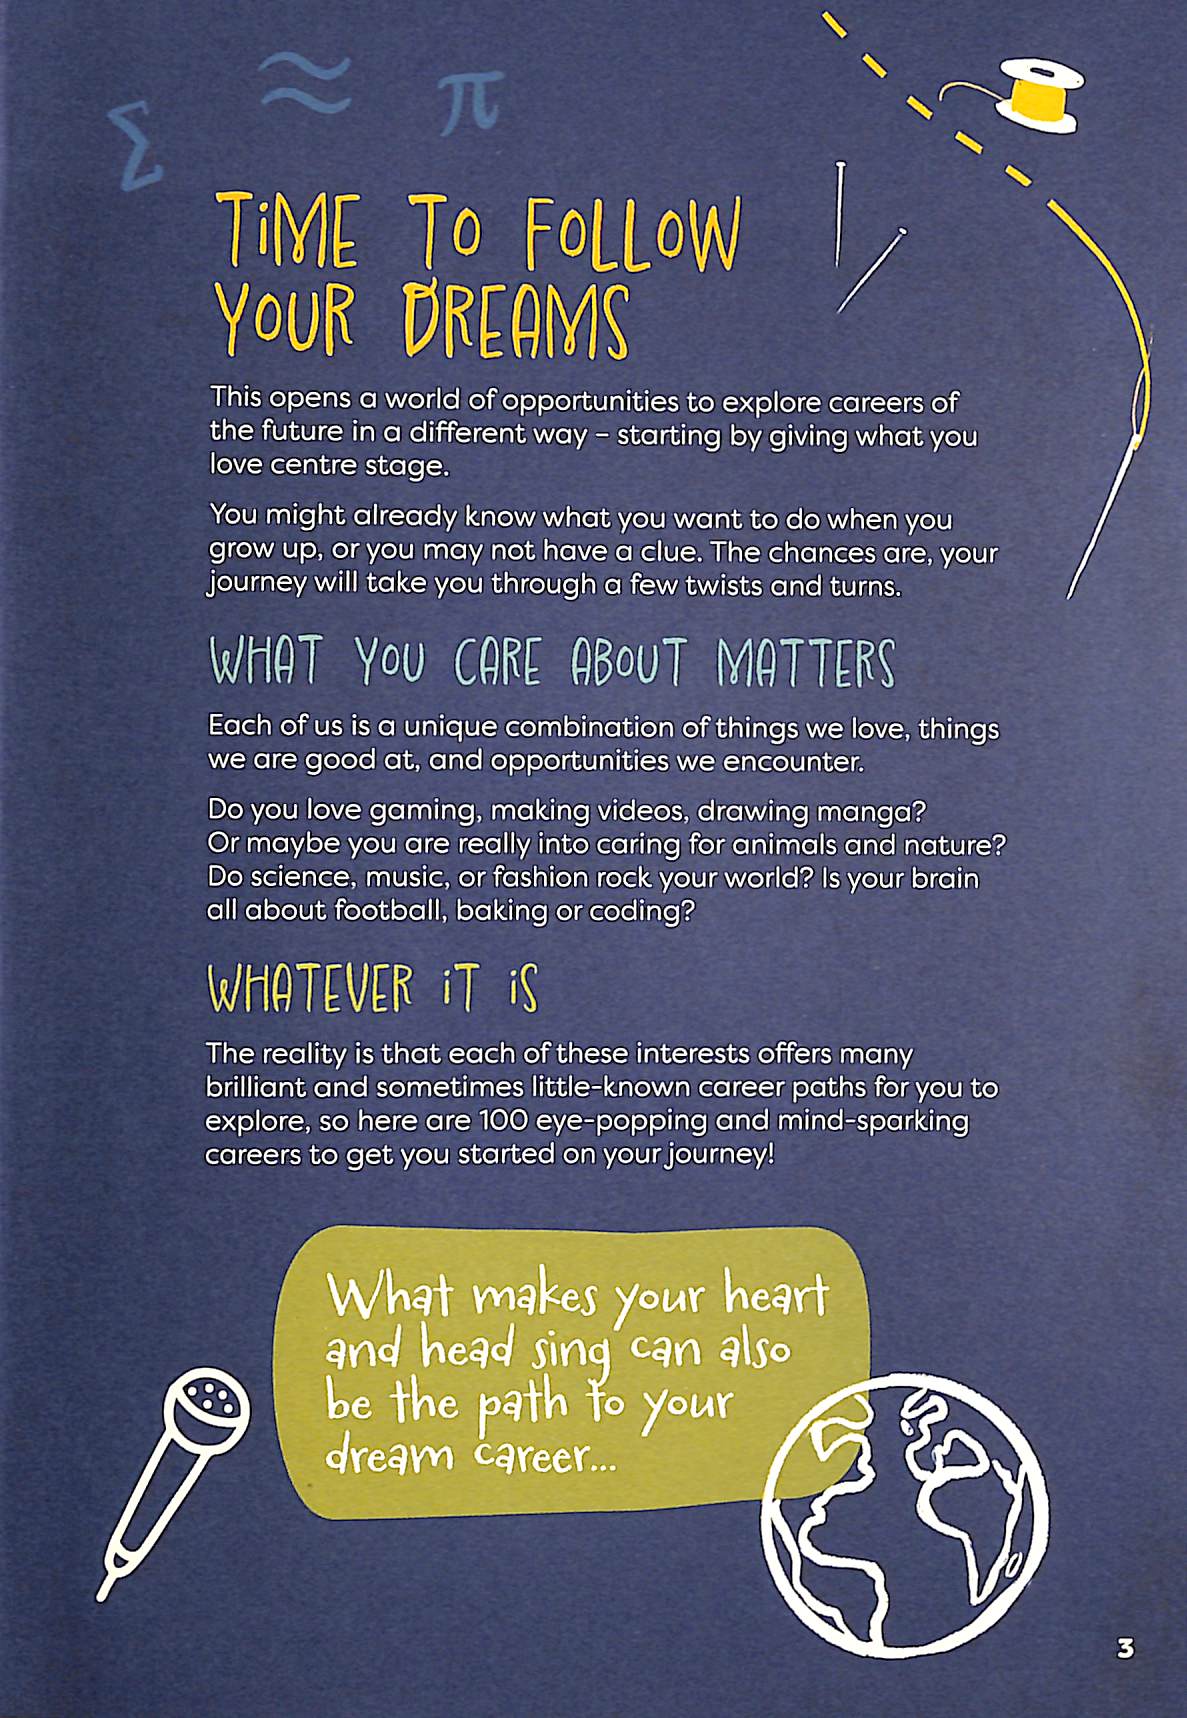 Σ ≈ π
TiME TO FOLLOW
YOUR DREAMS
This opens a world of opportunities to explore careers of
the future in a different way – starting by giving what you
love centre stage.
You might already know what you want to do when you
grow up, or you may not have a clue. The chances are, your
journey will take you through a few twists and turns.
WHAT YOU CARE ABOUT MATTERS
Each of us is a unique combination of things we love, things
we are good at, and opportunities we encounter.
Do you love gaming, making videos, drawing manga?
Or maybe you are really into caring for animals and nature?
Do science, music, or fashion rock your world? Is your brain
all about football, baking or coding?
WHATEVER iT iS
The reality is that each of these interests offers many
brilliant and sometimes little-known career paths for you to
explore, so here are 100 eye-popping and mind-sparking
careers to get you started on your journey!
What makes your heart
and head sing can also
be the path to your
dream career...
3